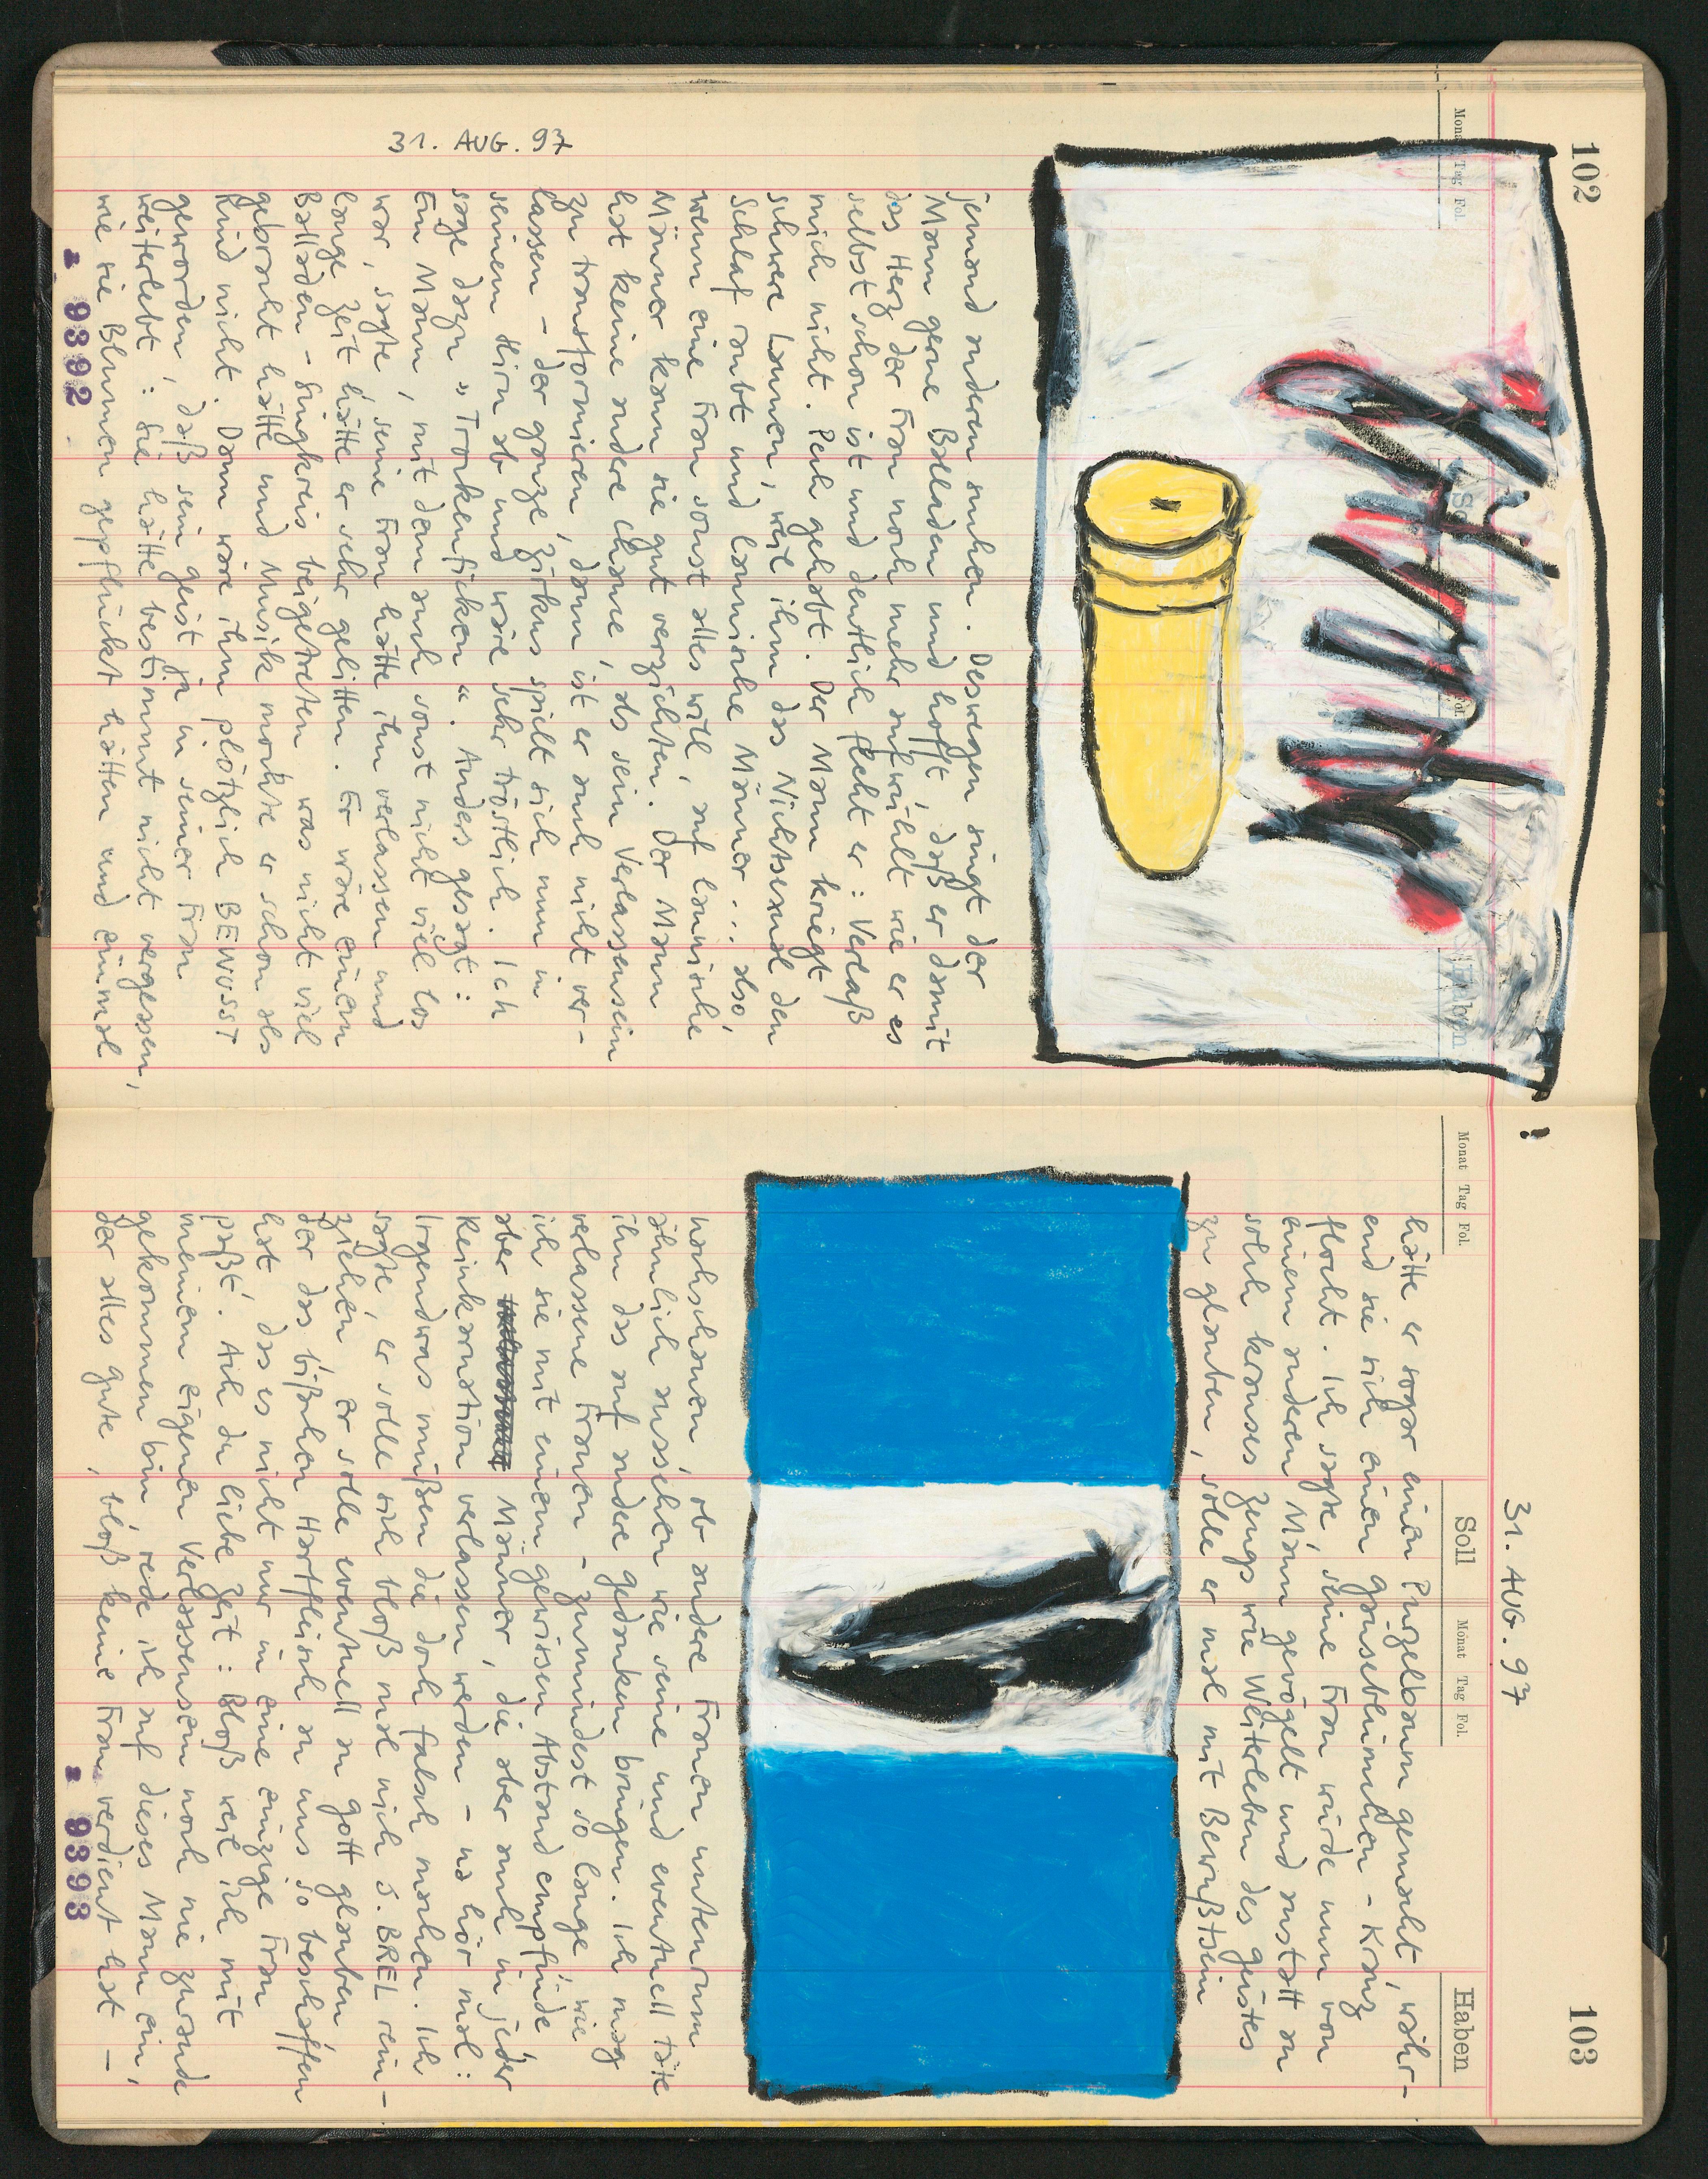 102
Monat Tag Fol.
jemand anderen suchen. Deswegen singt der
Mann gerne Balladen und hofft, daß er damit
das Herz der Frau noch mehr aufwühlt wie er es
selbst schon ist und deutlich fleht er: Verlaß
mich nicht. Pech gehabt. Der Mann kriegt
schwere Launen, weil ihm das Nichtsesual den
Schlaf raubt und launische Männer... also,
wenn eine Frau sonst alles will, auf launische
Männer kann sie gut verzichten. Der Mann
hat keine andere Chance, als sein Verlassensein
zu transformieren, dann ist er auch nicht ver-
lassen - der ganze Zirkus spielt sich nun in
seinem Hirn ab und wäre sehr tröstlich. Ich
sage dazu "Trockenficken". Anders gesagt:
Ein Mann, mit dem auch sonst nicht viel los
war, sagte, seine Frau hätte ihn verlassen und
lange Zeit hätte er sehr gelitten. Er wäre einem
Balladen-Singkreis beigetreten was nicht viel
gebracht hätte und Musik machte er schon als
Kind nicht. Dann wäre ihm plötzlich BEWUSST
geworden, daß sein geist ja in seiner Frau
weiterlebt: Sie hätte bestimmt nicht vergessen,
wie sie Blumen gepflückt hätten und einmal
31. AUG. 97
9392
31. AUG. 97
103
Monat Tag Fol. Soll Monat Tag Fol. Haben
hätte er sogar einen Purzelbaum gemacht, währ-
end sie sich einen gänseblümchen-Kranz
flocht. Ich sagte, seine Frau würde nun von
einem anderen Mann gevögelt und anstatt an
solch krauses Zeugs wie Weiterleben des geistes
zu glauben, solle er mal mit Bewußtsein
nachschauen, ob andere Frauen untenrum
ähnlich aussehen wie seine und eventuell täte
ihn das auf andere gedanken bringen. Ich mag
verlassene Frauen - zumindest so lange, wie
ich sie mit einem gewissen Abstand empfinde
aber Männer, die aber auch in jeder
Reinkarnation verlassen werden - na hör mal:
Irgendwas müßen die doch falsch machen. Ich
sagte, er solle sich bloß mal nich J. BREL rein-
ziehen, er solle eventuell an gott glauben
der das bißchen Hartfleisch an uns so beschaffen
hat, das es nicht nur in eine einzige Frau
paßt. Ach du liebe Zeit: Bloß weil ich mit
meinem eigenen Verlassensein noch nie zurande
gekommen bin, rede ich auf dieses Mann ein,
der alles gute, bloß keine Frau verdient hat -
9393